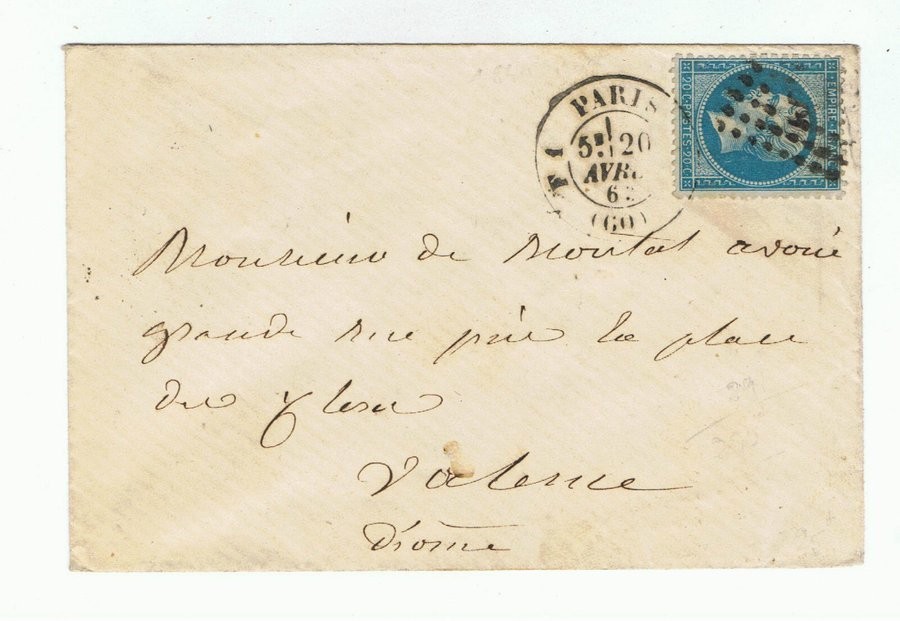 PARIS
5E 20
AVRIL
6
(60)
EMPIRE FRANC
20 C POSTES 20 C
Monsieur de Montal avoué
grande rue près la place
des Clercs
Valence
Drôme